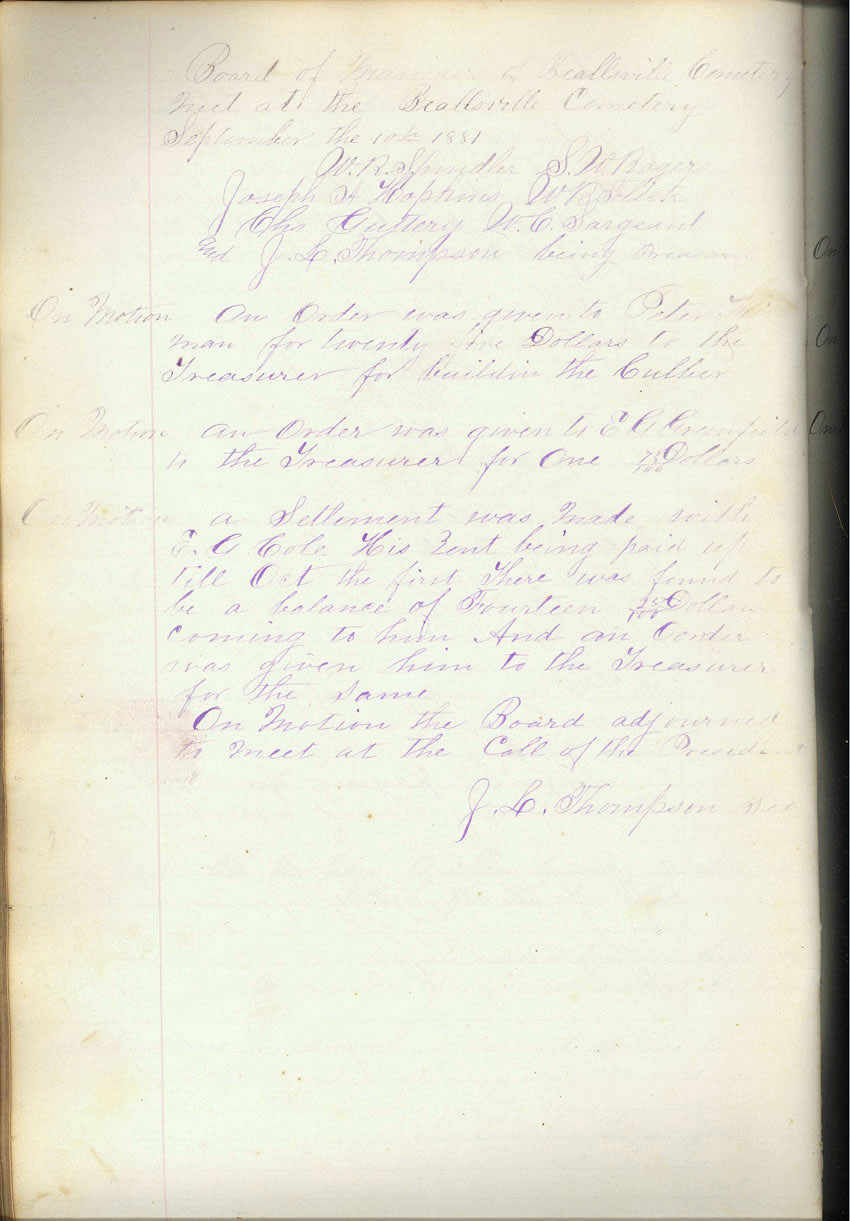 Board of Manigers of Beallsville Cemetery
Met at the Beallsville Cemetery
September the 10th 1881
W. R. Spindler S. W. Rogers
Joseph A Hopkins W B
Chs Guttery W. C. Sargeant
and J. L. Thompson being Preasant
On Motion An Order was given to Peter
man for twenty five Dollars to the
Treasurer for buildin the Culber
On Motion an Order was given to E G Greenfield
to the Treasurer for One 75/100 Dollars
On Motion a Settlement was Made with
E. G Cole His Rent being paid up
till Oct the first There was found to
be a balance of Fourteen 25/100 Dollars
coming to him And an Oorder
was given him to the Treasurer
for the same
On Motion the Board adjourned
to Meet at the Call of the President
J. L. Thompson Sec
On
On
On